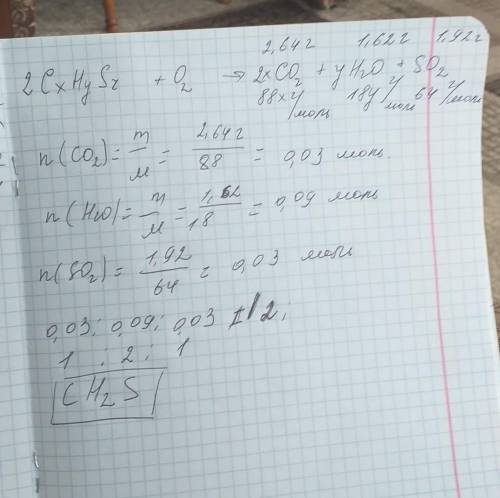 2,64г 1,62г 1,92г
2CxHySz + O2 → 2xCO2 + yH2O + SO2
88x г/моль 18y г/моль 64 г/моль
n(CO2) = m/M = 2,64г/88 = 0,03 моль.
n(H2O) = m/M = 1,62/18 = 0,09 моль
n(SO2) = 1,92/64 = 0,03 моль
0,03; 0,09; 0,03 /2;
1 : 2 ; 1
CH2S